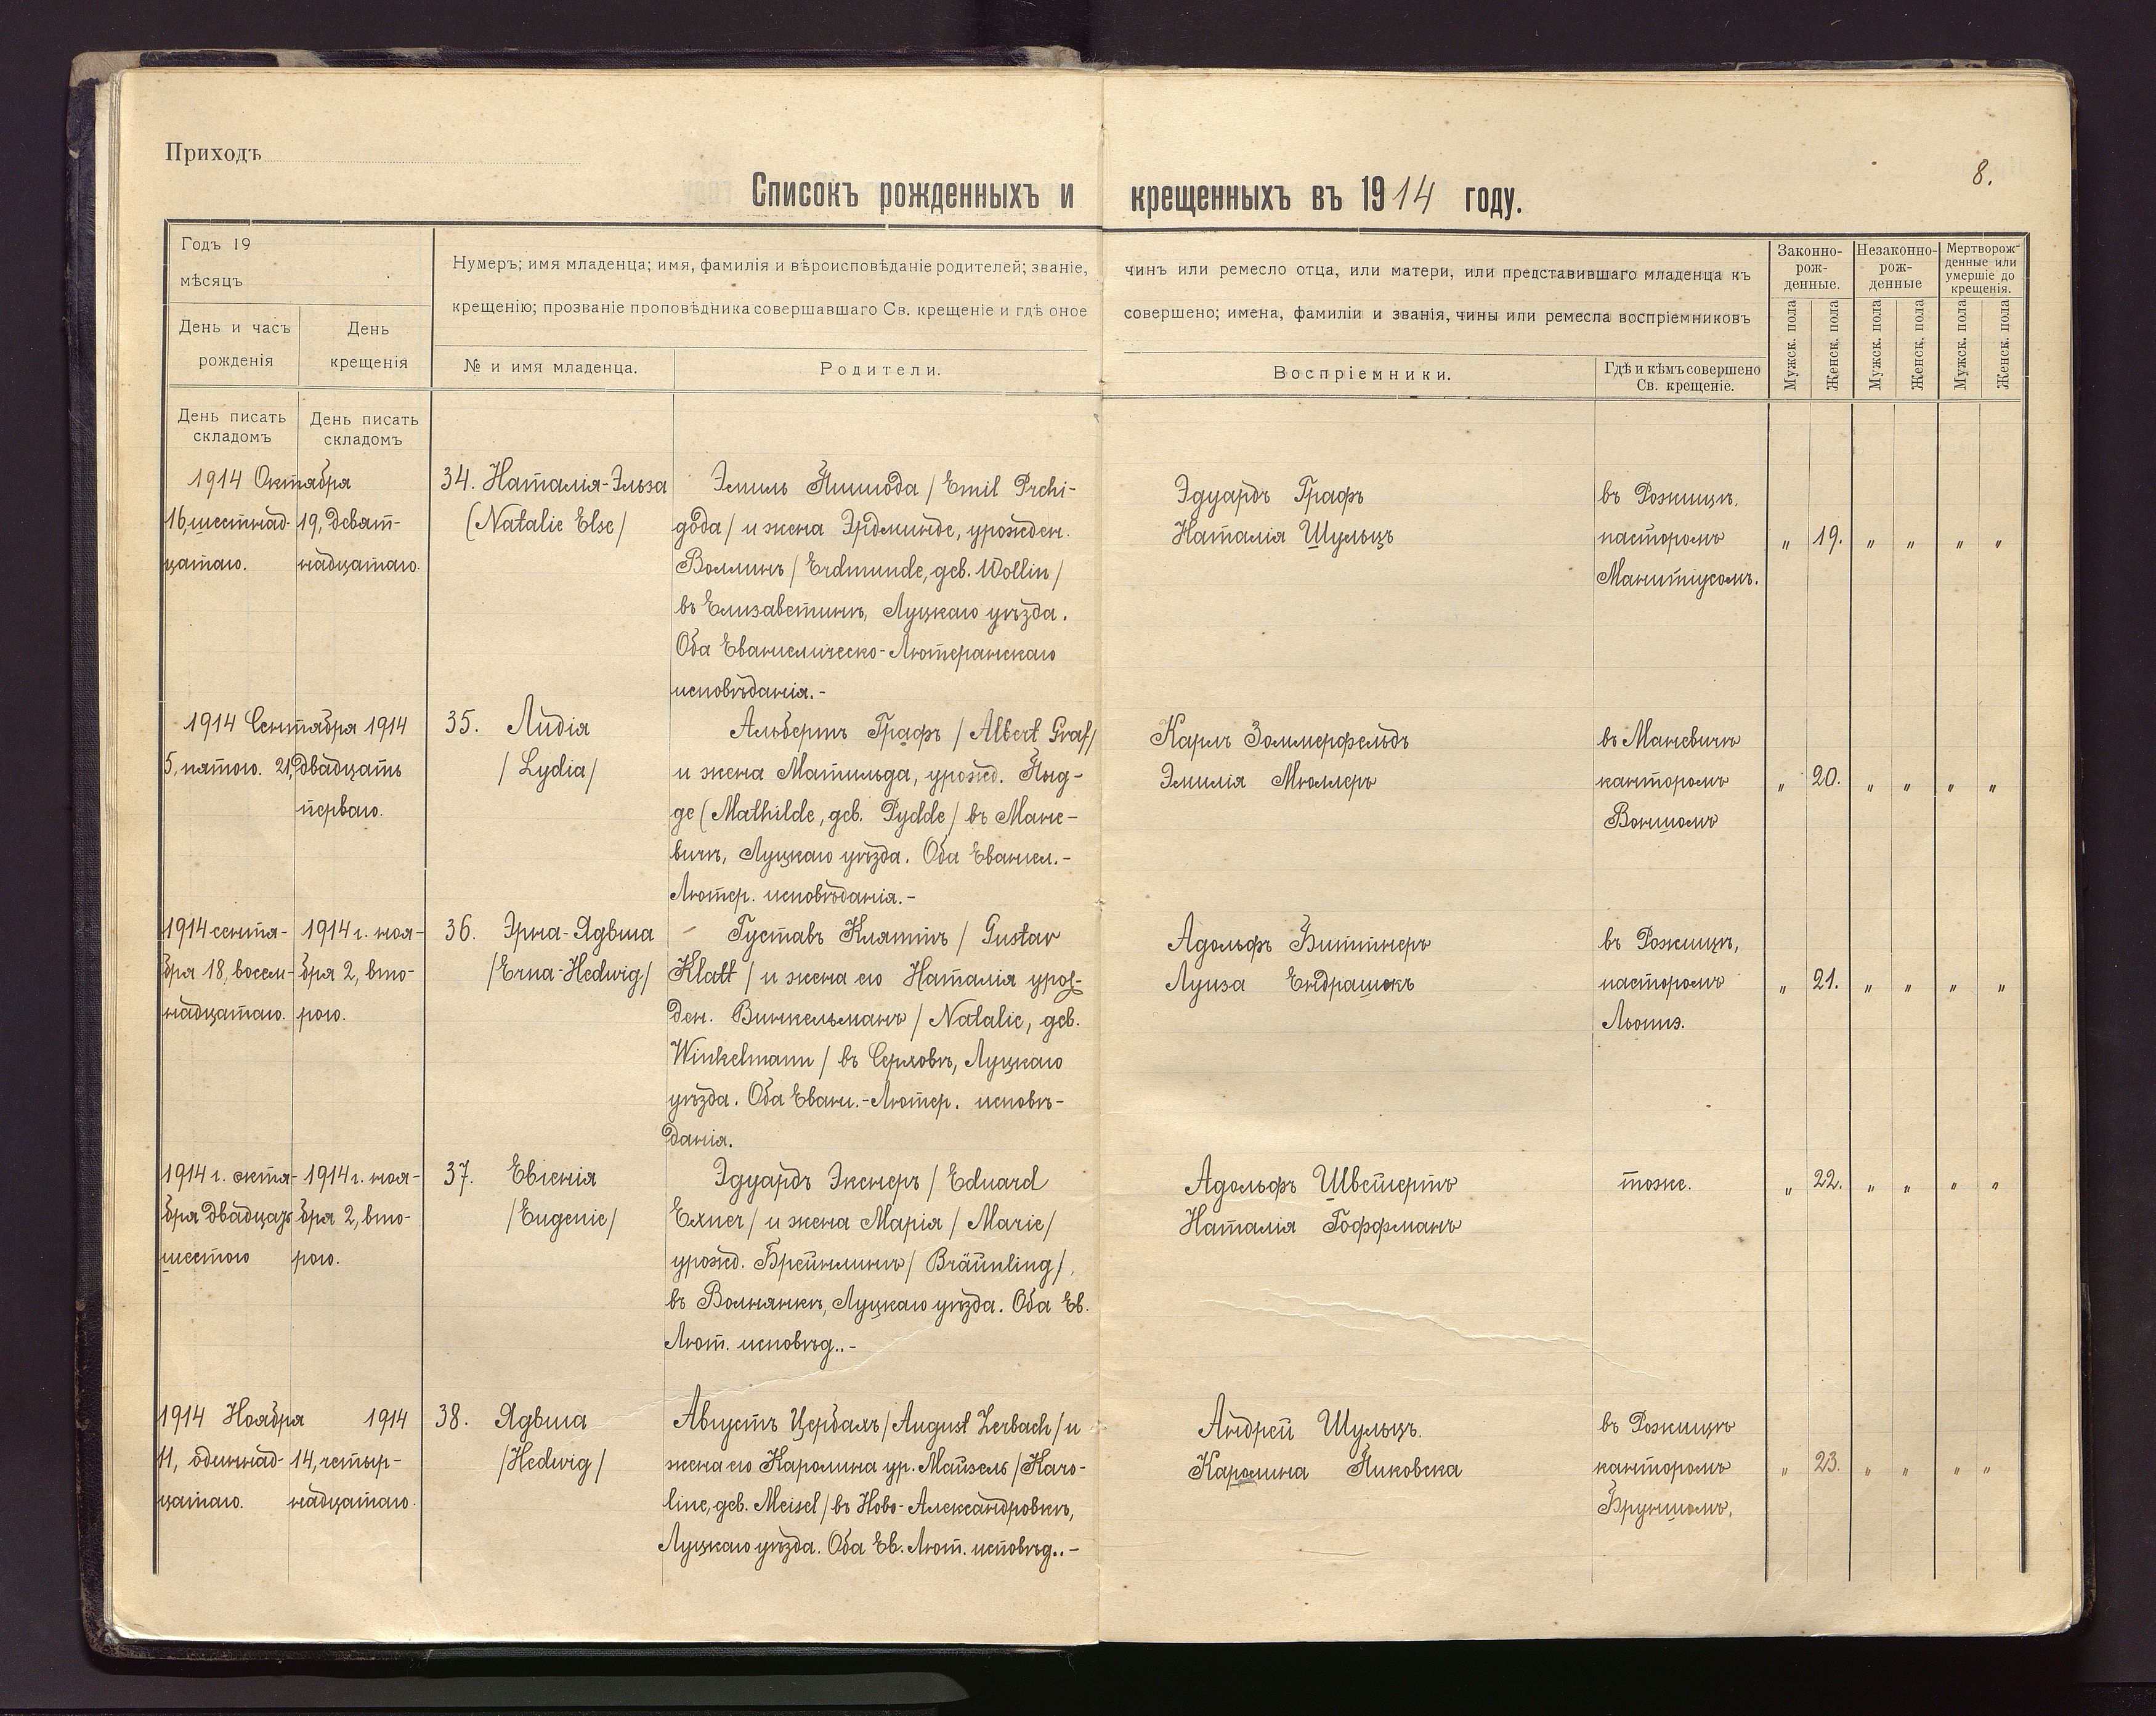 Приходъ
8.
Списокъ рожденныхъ и крещенныхъ въ 1914 году.
Годъ 19
мѣсяцъ
День и часъ рожденія
День крещенія
День писать складомъ
День писать складомъ
Нумеръ; имя младенца; имя, фамилія и вѣроисповѣданіе родителей; званіе, чинъ или ремесло отца, или матери, или представившаго младенца къ
крещенію; прозваніе проповѣдника совершавшаго Св. крещеніе и гдѣ оное совершено; имена, фамиліи и званія, чины или ремесла воспріемниковъ
№ и имя младенца.
Родители.
Воспріемники.
Гдѣ и кѣмъ совершено
Св. крещеніе.
Законно-
рож-
денные.
Незаконно-
рож-
денные
Мертворож-
денные или
умершіе до
крещенія.
Мужск. пола
Женск. пола
Мужск. пола
Женск. пола
Мужск. пола
Женск. пола
1914 Октября
16, шестнад-
цатаго.
19, девят-
надцатаго.
34. Наталія-Эльза
(Natalie Else/
Эмиль Пшигода / Emil Prchi-
goda/ и жена Эрдмунде, урожден.
Воллинъ / Erdmunde, geb. Wollin/
въ Елизаветинѣ, Луцкаго уѣзда.
Оба Евангелическо-Лютеранскаго
исповѣданія.-
Эдуардъ Графъ
Наталія Шульцъ
въ Рожищѣ,
пасторомъ
Манитіусомъ.
" 19. " " " "
1914 Сентября 1914
5, пятого.
21, двадцать
перваго.
35. Лидія
/Lydia/
Альбертъ Графъ / Albert Graf/
и жена Матильда, урожд. Пыд-
де (Mathilde, geb. Pydde/ въ Мане-
вичѣ, Луцкаго уѣзда. Оба Евангел.-
Лютер. исповѣданія.-
Карлъ Зоммерфельдъ
Эмилія Мюллеръ
въ Маневичѣ
канторомъ
" 20. " " " "
1914 сентя-
бря 18, восем-
надцатаго.
1914 г. ноя-
бря 2, вто-
рого.
36. Эрна-Ядвига
/Erna-Hedwig/
Густавъ Клаттъ / Gustav
Klatt / и жена его Наталія урож-
ден. Винкельманъ / Natalie, geb.
Winkelmann / въ Серховѣ, Луцкаго
уѣзда. Оба Еванг.-Лютер. исповѣ-
данія.
Адольфъ Биттнеръ
Луиза Ендрашекъ
въ Рожищѣ,
пасторомъ
" 21. " " " "
1914 г. октя-
бря двадцать
шестого
1914 г. ноя-
бря 2, вто-
рого.
37. Евгенія
/Eugenie/
Эдуардъ Экснеръ / Eduard
Exner/ и жена Марія / Marie/
урожд. Брейнлингъ / Bräunling/,
въ Волнянкѣ, Луцкаго уѣзда. Оба Ев.
Лют. исповѣд..-
Адольфъ Швейгертъ
Наталія Гоффманъ
тоже.
" 22. " " " "
1914 Ноября 1914
11, одиннад-
цатаго.
14, четыр-
надцатаго.
38. Ядвига
/Hedwig/
Августъ Цербахъ / August Zerbach/ и
жена его Каролина ур. Майзель / Karo-
line, geb. Meisel / въ Ново-Александровкѣ,
Луцкаго уѣзда. Оба Ев. Лют. исповѣд..-
Андрей Шульцъ.
Каролина Пиковска
въ Рожищѣ
канторомъ
" 23. " " " "